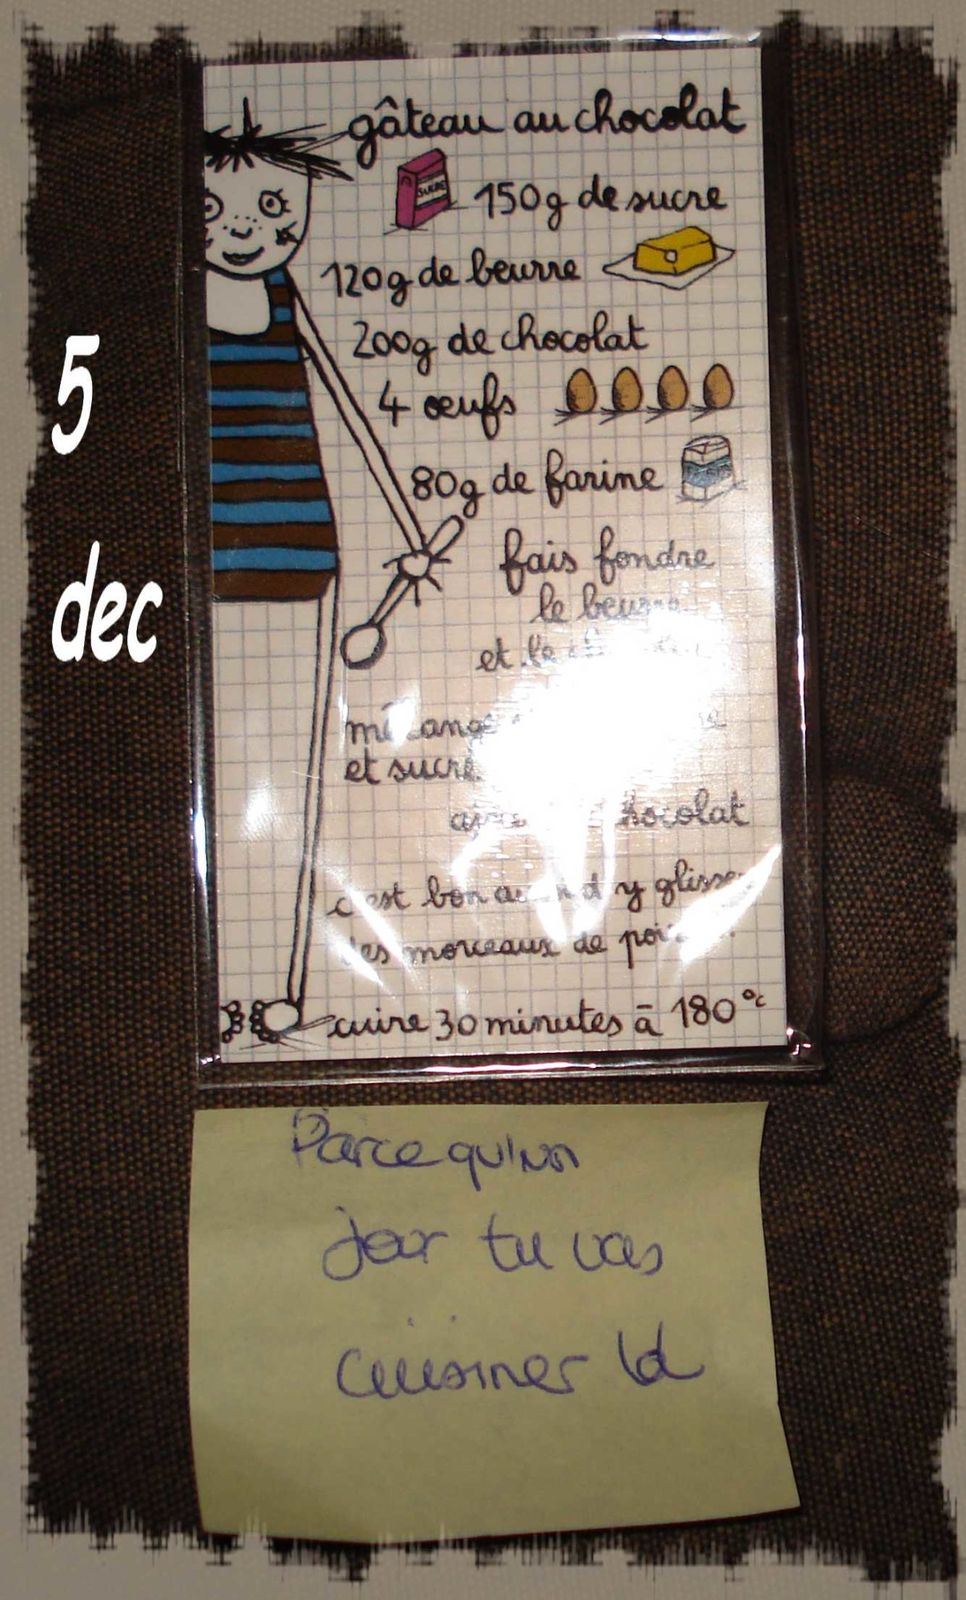 5
dec
gâteau au chocolat
SUCRE
150g de sucre
120g de beurre
200g de chocolat
4 œufs
80g de farine
fais fondre
le beurre
et le
et sucre
chocolat
c'est bon d'y glisser
des morceaux de
cuire 30 minutes à 180°c
Parce qu'un
jour tu vas
cuisiner ld